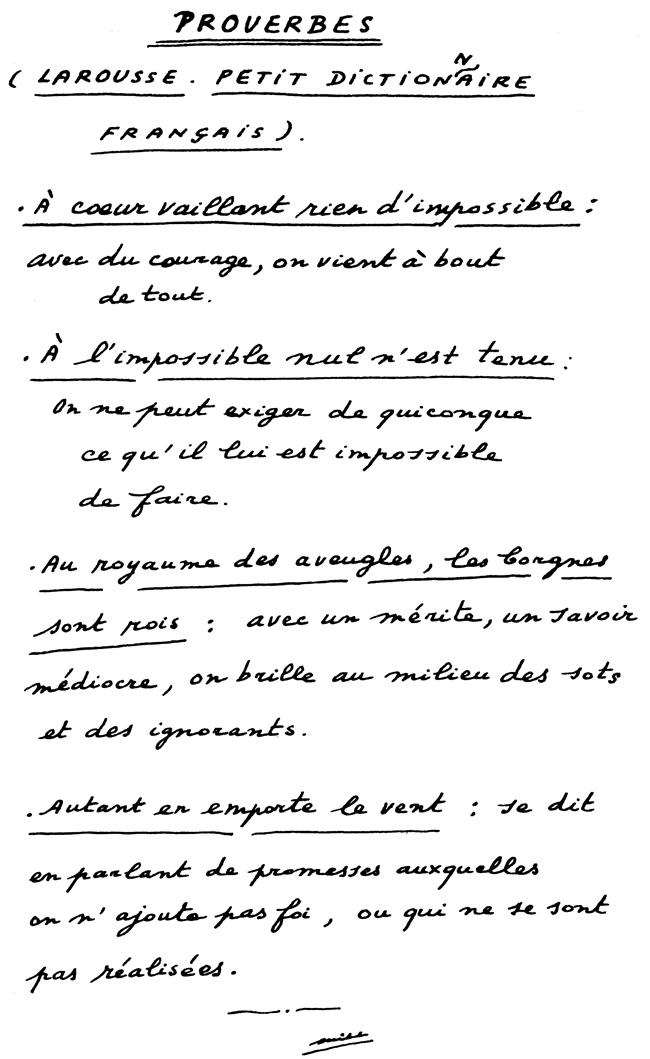 PROVERBES
( LAROUSSE. PETIT DICTIONNAIRE
FRANÇAIS ).
. À coeur vaillant rien d'impossible :
avec du courage, on vient à bout
de tout.
. À l'impossible nul n'est tenu :
On ne peut exiger de quiconque
ce qu'il lui est impossible
de faire.
. Au royaume des aveugles, les borgnes
sont rois : avec un mérite, un savoir
médiocre, on brille au milieu des sots
et des ignorants.
. Autant en emporte le vent : se dit
en parlant de promesses auxquelles
on n'ajoute pas foi, ou qui ne se sont
pas réalisées.